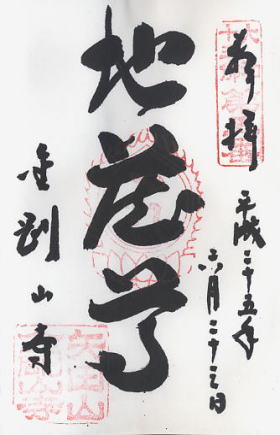 奉拝
平成二十五年
六月二十三日
地蔵尊
金剛山寺
矢田山